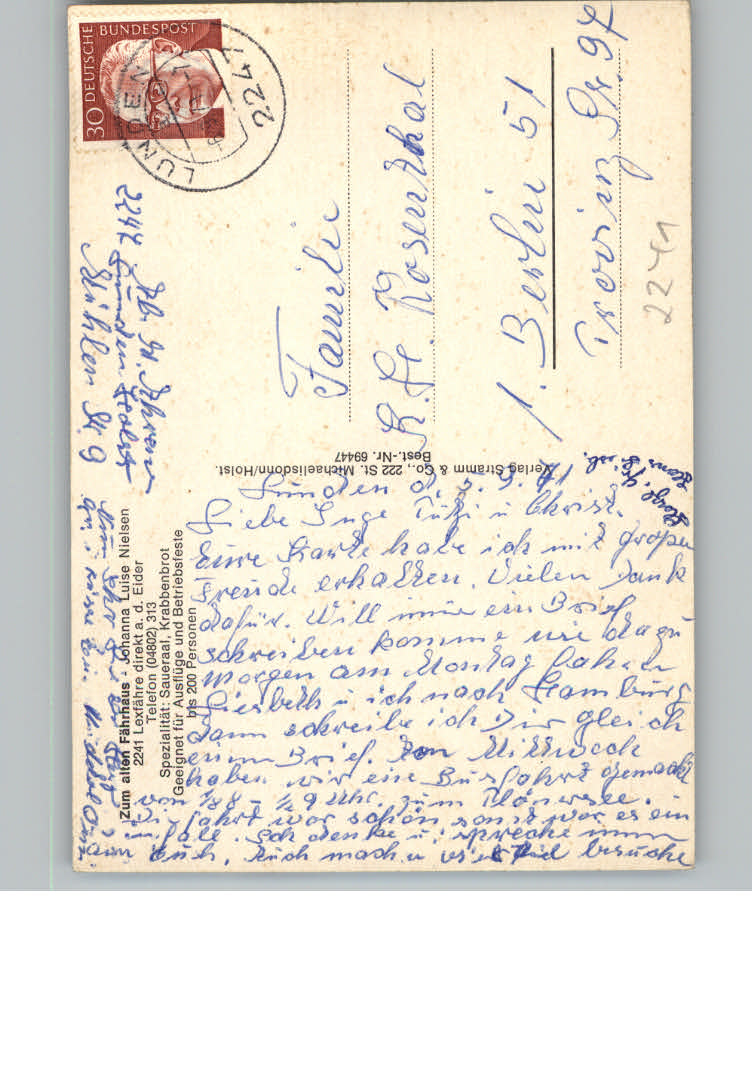 30 DEUTSCHE BUNDESPOST
LUNDEN
2241
Familie
K. H. Rosenthal
1 Berlin 51
Provinz Str. 97
2241
2241 Lunden Holst
Mühlen Str. 9
Verlag Stramm & Co., 222 St. Michaelisdonn/Holst.
Best.-Nr. 69447
Zum alten Fährhaus - Johanna Luise Nielsen
2241 Lexfähre direkt a. d. Eider
Telefon (04802) 313
Spezialität: Saueraal, Krabbenbrot
Geeignet für Ausflüge und Betriebsfeste
bis 200 Personen
Lunden d. 5.9.71
Liebe Inge u Christ.
Eure Karte habe ich mit großer
Freude erhalten. Vielen Dank
dafür. Will immer ein Brief
schreiben komme nie dazu
Morgen am Montag fahren
Liesbeth u ich nach Hamburg
dann schreibe ich Dir gleich
einen Brief. Mittwoch
haben wir eine Busfahrt gemacht
von ½8 - ½9 Uhr. zum Plönersee.
Die Fahrt war schön sonst war es ein
Ich denke u. spreche immer
von Euch. Auch mach u viel besuche